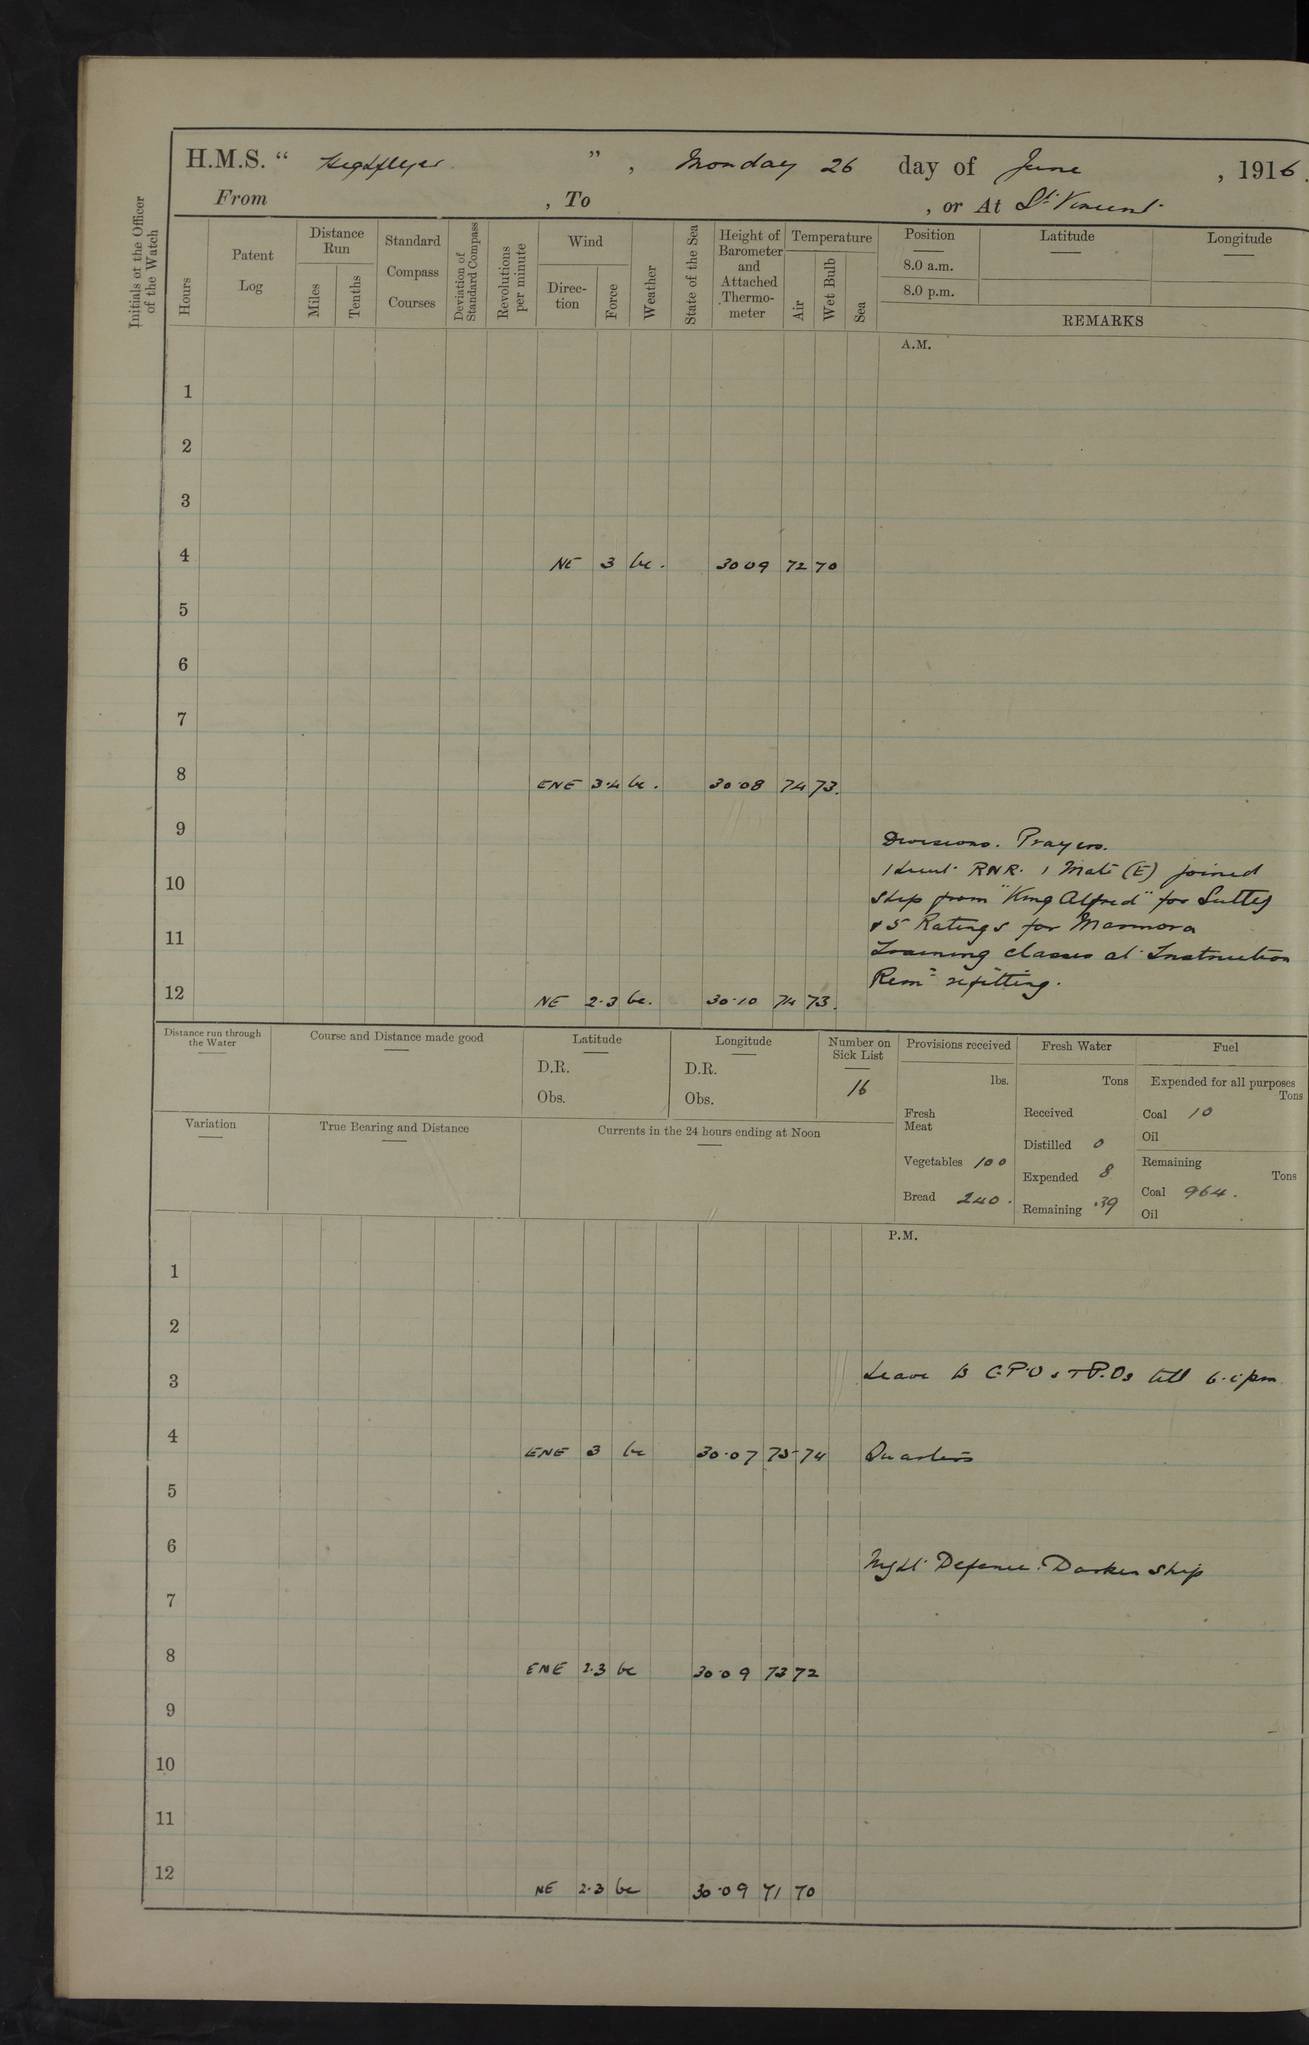 H.M.S. “ Highflyer ”, Monday 26 day of June, 1916.
From , To , or At St. Vincent.
Initials of the Officer of the Watch
Hours
Patent Log
Distance Run
Miles
Tenths
Standard Compass Courses
Deviation of Standard Compass
Revolutions per minute
Wind
Direction
Force
Weather
State of the Sea
Height of Barometer and Attached Thermometer
Temperature
Air
Wet Bulb
Sea
Position Latitude Longitude
8.0 a.m.
8.0 p.m.
REMARKS
A.M.
1
2
3
4 NE 3 bc. 30 09 72 70
5
6
7
8 ENE 3.4 bc. 30.08 74 73.
9 Divisions. Prayers.
1 Lieut. RNR. 1 Mate (E) joined
10 ship from "King Alfred" for Sutlej
& 5 Ratings for Marmora
11 Training classes at Instruction
Remr. refitting.
12 NE 2.3 bc. 30.10 74 73.
Distance run through the Water
Course and Distance made good
Latitude
D.R.
Obs.
Longitude
D.R.
Obs.
Number on Sick List
16
Provisions received
lbs.
Fresh Meat
Vegetables 100
Bread 240.
Fresh Water
Tons
Received
Distilled 0
Expended 8
Remaining 39
Fuel
Expended for all purposes
Tons
Coal 10
Oil
Remaining
Tons
Coal 964.
Oil
Variation
True Bearing and Distance
Currents in the 24 hours ending at Noon
P.M.
1
2
3 Leave to C.P.Os & P.Os till 6.0 pm
4 ENE 3 bc 30.07 75 74 Quarters
5
6 Night Defence. Darken ship
7
8 ENE 2.3 bc 30.09 73 72
9
10
11
12 NE 2.3 bc 30.09 71 70